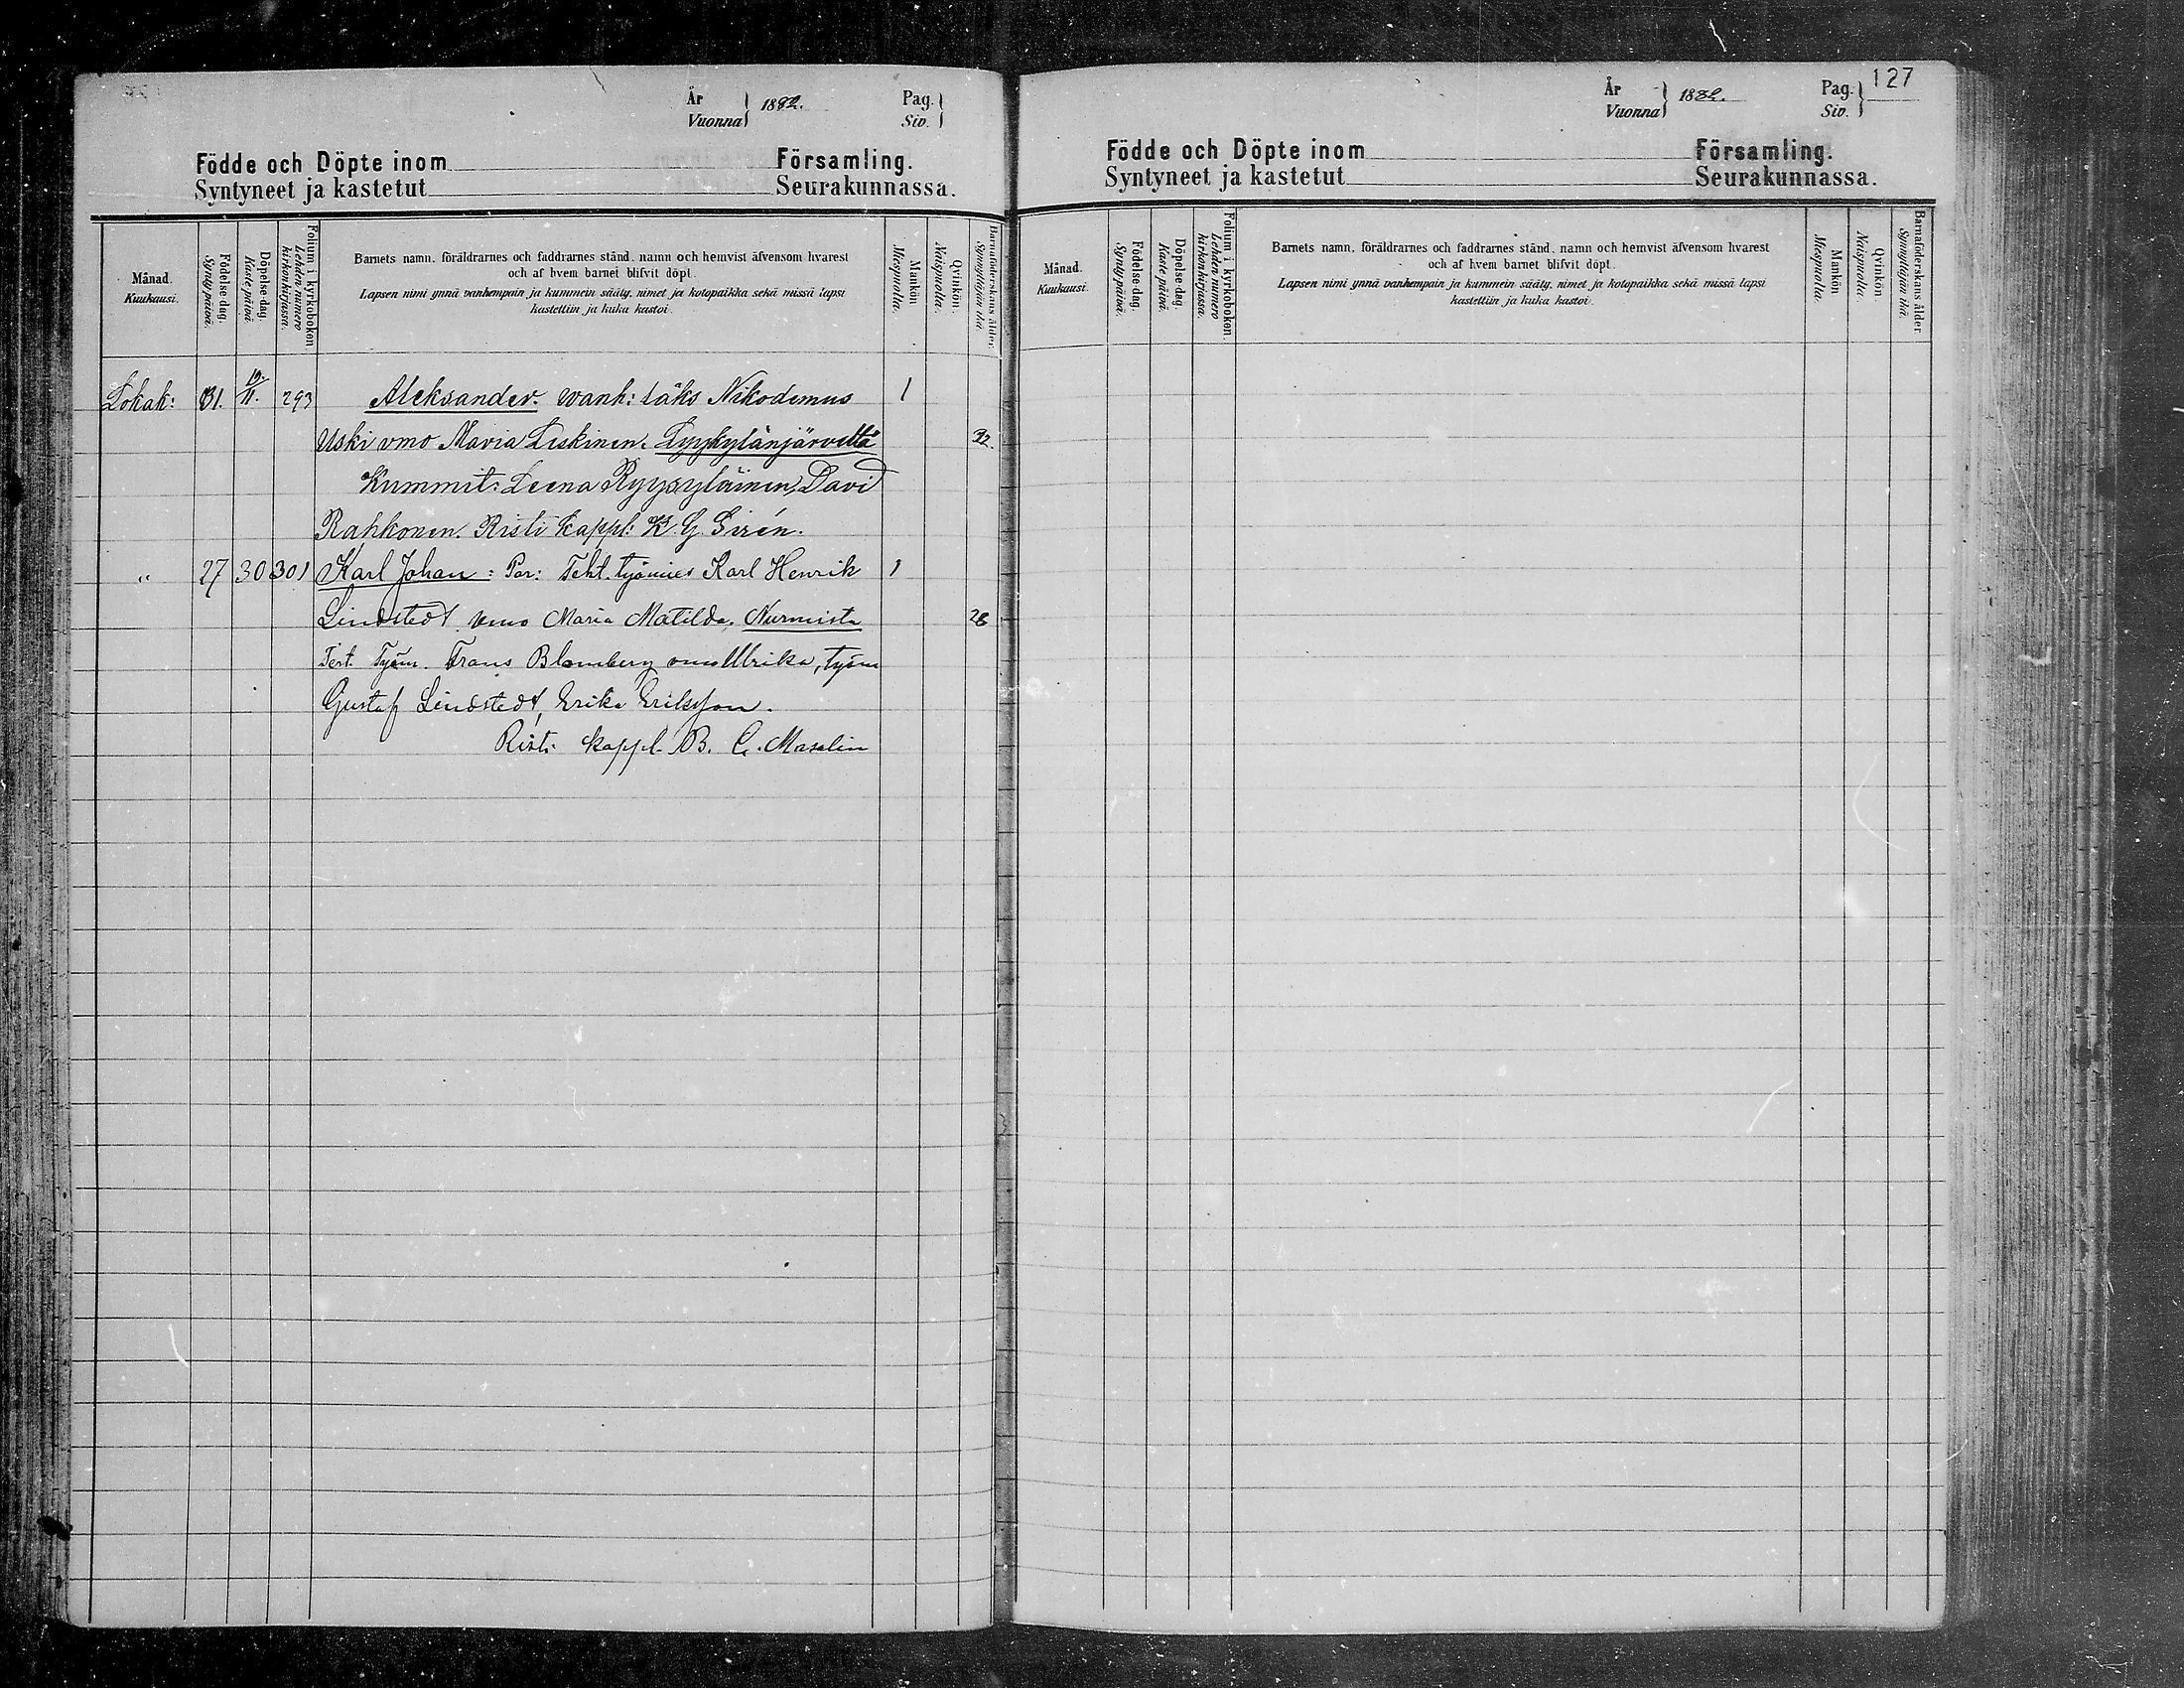 År
Vuonna } 1882.
Pag.
Siv. }
Födde och Döpte inom Församling.
Syntyneet ja kastetut Seurakunnassa.
Månad. Kuukausi.
Födelse-dag. Syntypäivä.
Döpelse-dag. Kastepäivä.
Folium i kyrkoboken. Lehden numero kirkonkirjassa.
Barnets namn, föräldrarnes och faddrarnes stånd, namn och hemvist äfvensom hvarest
och af hvem barnet blifvit döpt.
Lapsen nimi ynnä vanhempain ja kummein sääty, nimet ja kotopaikka sekä missä lapsi
kastettiin ja kuka kastoi.
Mankön. Miespuolia.
Qvinkön. Naispuolia.
Barnaföderskans ålder. Synnyttäjän ikä.
Lokak: 31. 19./11. 293 Aleksander. wanh: läks Nikodemus 1
Uski vmo Maria Liskinen. Lyykylänjärveltä 32.
Kummit: Leena Ryysyläinen, David
Rahkonen. Risti kappl: K. G. Sirén.
" 27 30 301 Karl Johan: Par: Teht. työmies Karl Henrik 1
Lindstedt vmo Maria Matilda, Nurmista 28
Test. Työm. Frans Blomberg vmo Ulrika, työm
Gustaf Lindstedt, Erika Eriksson.
Risti kappl. B. C. Masalin
År
Vuonna } 1882.
Pag.
Siv. } 127
Födde och Döpte inom Församling.
Syntyneet ja kastetut Seurakunnassa.
Månad. Kuukausi.
Födelse-dag. Syntypäivä.
Döpelse-dag. Kastepäivä.
Folium i kyrkoboken. Lehden numero kirkonkirjassa.
Barnets namn, föräldrarnes och faddrarnes stånd, namn och hemvist äfvensom hvarest
och af hvem barnet blifvit döpt.
Lapsen nimi ynnä vanhempain ja kummein sääty, nimet ja kotopaikka sekä missä lapsi
kastettiin ja kuka kastoi.
Mankön. Miespuolia.
Qvinkön. Naispuolia.
Barnaföderskans ålder. Synnyttäjän ikä.